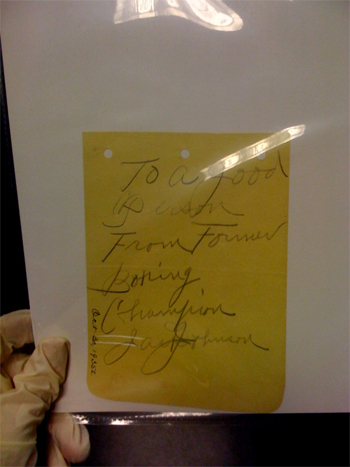 To a good
Person
From Former
Boxing
Champion
Jack Johnson